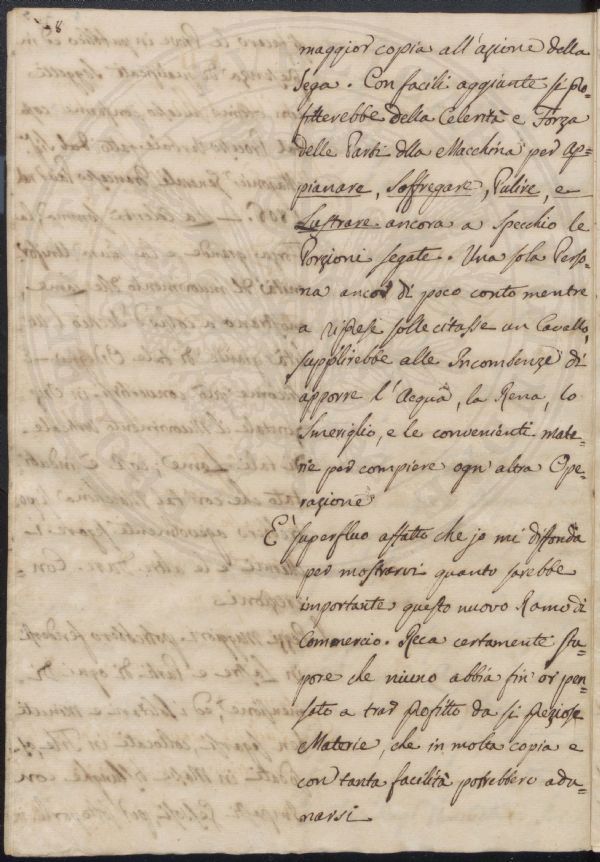 8
maggior copia all'azione della
Sega. Con facili aggiante si pro=
fitterebbe della Celerità e Forza
delle Parti dlla Macchina per ap=
pianare, Soffregare, Pulire, e
Lustrare ancora a Specchio le
Porzioni segate. Una sola Perso=
na ancor di poco conto mentre
a riprese sollecitasse un Cavallo,
supplirebbe alle Incombenze di
apporre l'Acqua, la Rena, lo
Smeriglio, e le convenienti mate=
rie per compiere ogn'altra Ope=
razione
E' superfluo affatto che io mi diffonda
per mostrarvi quanto sarebbe
importante questo nuovo Ramo di
Commercio. Reca certamente stu=
pore che niuno abbia fin'or pen=
sato a trar profitto da sì preziose
Materie, che in molta copia e
con tanta facilità potrebbero adu=
narsi